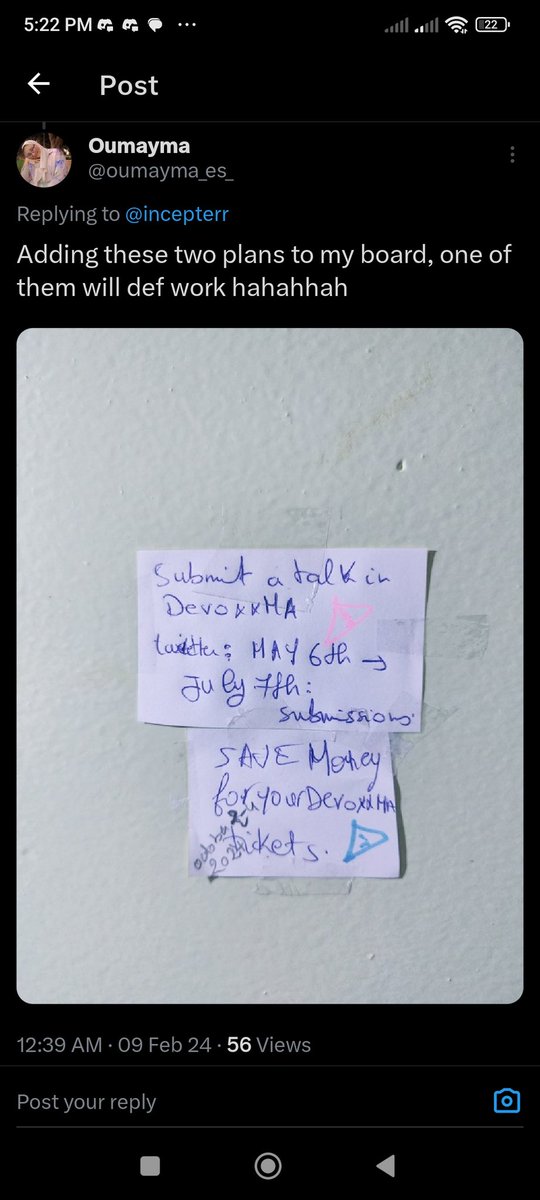 5:22 PM
22
Post
Oumayma
@oumayma_es_
Replying to @incepterr
Adding these two plans to my board, one of
them will def work hahahhah
Submit a talk in
DevoxxMA
1
MAY 6th →
July 7th:
submissions
SAVE Money
for your DevoxxMA
tickets.
2
october 2-4
2024
12:39 AM · 09 Feb 24 · 56 Views
Post your reply